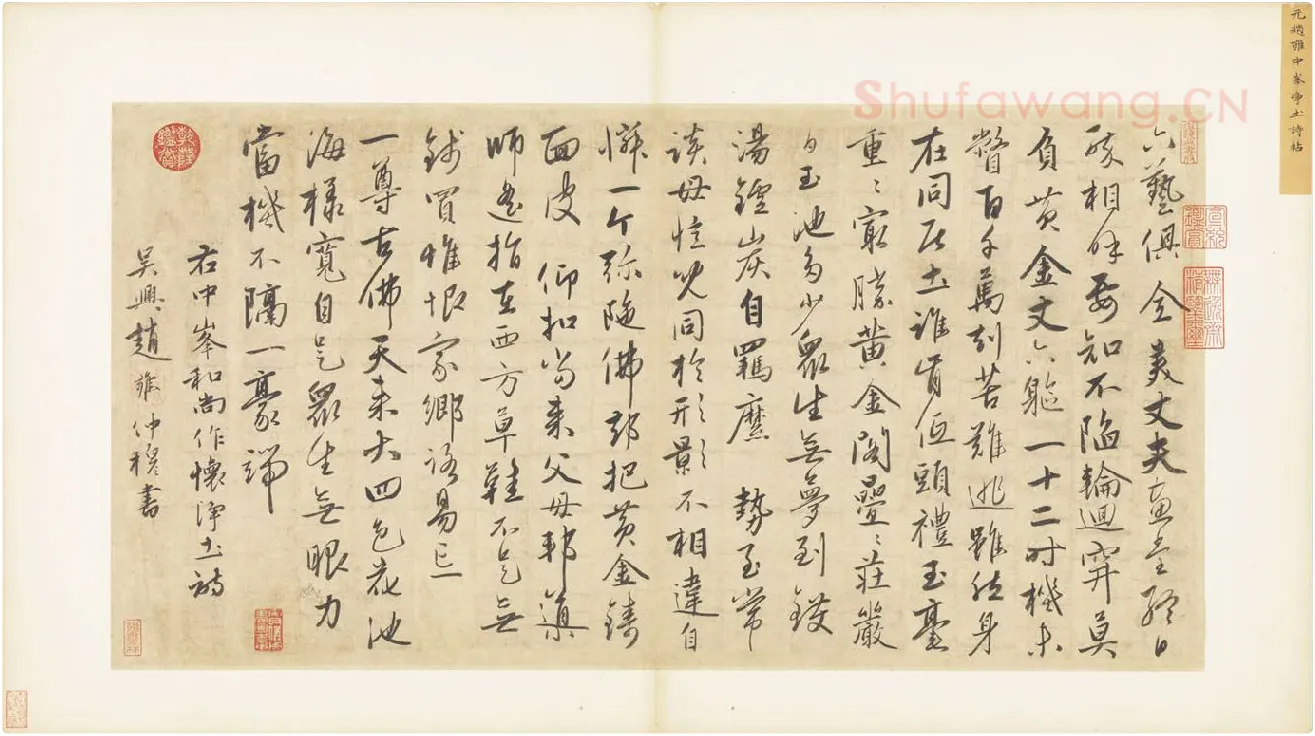 元趙雍中峯淨土詩帖
Shufawang.CN
六藝俱全美丈夫畫堂終日
相 要知不陷輪迴穽莫
負黃金丈六軀一十二时機未
瞥百千萬刧苦難逃雖然身
在同居土誰肯低頭禮玉毫
重〻冣勝黃金閣疊〻莊嚴
白玉池多少眾生無夢到鑊
湯鑪炭自羈縻 勢至常
談母憶児同於形景不相違自
憐一个 隨佛却把黃金鑄
面皮 仰扣當來父母邦
師遙指在西方草鞋不是無
錢買惟恨家鄉路易忘
一尊古佛天來大四色花池
海樣寬自是眾生無眼力
當機不隔一毫端
右中峯和尚作懷淨土詩
吳興趙雍仲穆書
乾隆鑑賞